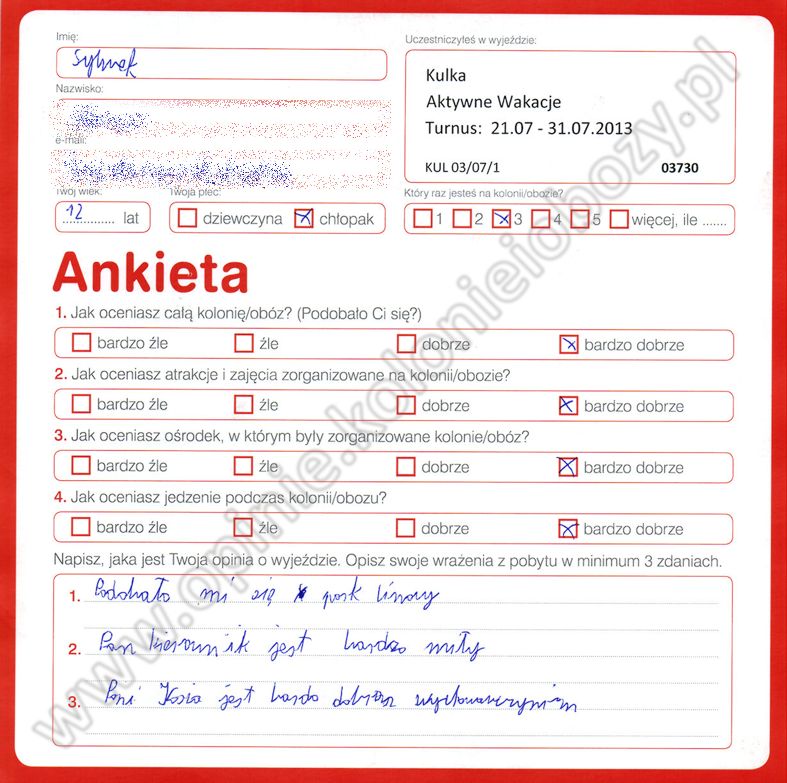 Imię:
Uczestniczyłeś w wyjeździe:
Kulka
Nazwisko:
Aktywne Wakacje
Turnus: 21.07 - 31.07.2013
e-mail:
KUL 03/07/1 03730
Twój wiek:
Twoja płeć:
Który raz jesteś na kolonii/obozie?
12 lat
dziewczyna
chłopak
1 2 3 4 5 więcej, ile .......
Ankieta
1. Jak oceniasz całą kolonię/obóz? (Podobało Ci się?)
bardzo źle źle dobrze bardzo dobrze
2. Jak oceniasz atrakcje i zajęcia zorganizowane na kolonii/obozie?
bardzo źle źle dobrze bardzo dobrze
3. Jak oceniasz ośrodek, w którym były zorganizowane kolonie/obóz?
bardzo źle źle dobrze bardzo dobrze
4. Jak oceniasz jedzenie podczas kolonii/obozu?
bardzo źle źle dobrze bardzo dobrze
Napisz, jaka jest Twoja opinia o wyjeździe. Opisz swoje wrażenia z pobytu w minimum 3 zdaniach.
1. Podobało mi się park linowy
2. Pan kierownik jest bardzo miły
3. Pani Kasia jest bardo
www.opinie.kolonieiobozy.pl